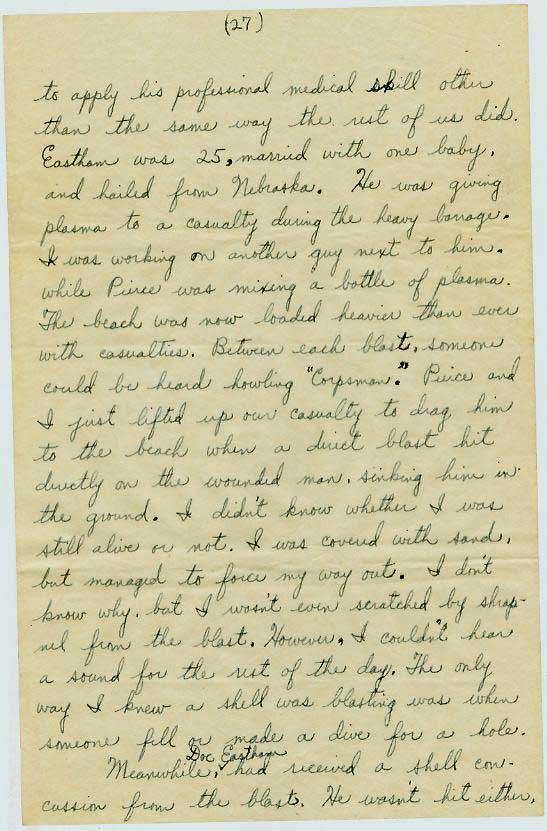 (27)
to apply his professional medical skill other
than the same way the rest of us did.
Eastham was 25, married with one baby,
and hailed from Nebraska. He was giving
plasma to a casualty during the heavy barrage.
I was working on another guy next to him.
while Pierce was mixing a bottle of plasma.
The beach was now loaded heavier than ever
with casualties. Between each blast, someone
could be heard howling "Corpsman." Pierce and
I just lifted up our casualty to drag him
to the beach when a direct blast hit
directly on the wounded man, sinking him in
the ground. I didn't know whether I was
still alive or not. I was covered with sand,
but managed to force my way out. I don't
know why, but I wasn't even scratched by shrap-
nel from the blast. However, I couldn't hear
a sound for the rest of the day. The only
way I knew a shell was blasting was when
someone fell or made a dive for a hole.
Meanwhile, Doc Eastham had received a shell con-
cussion from the blast. He wasn't hit either,